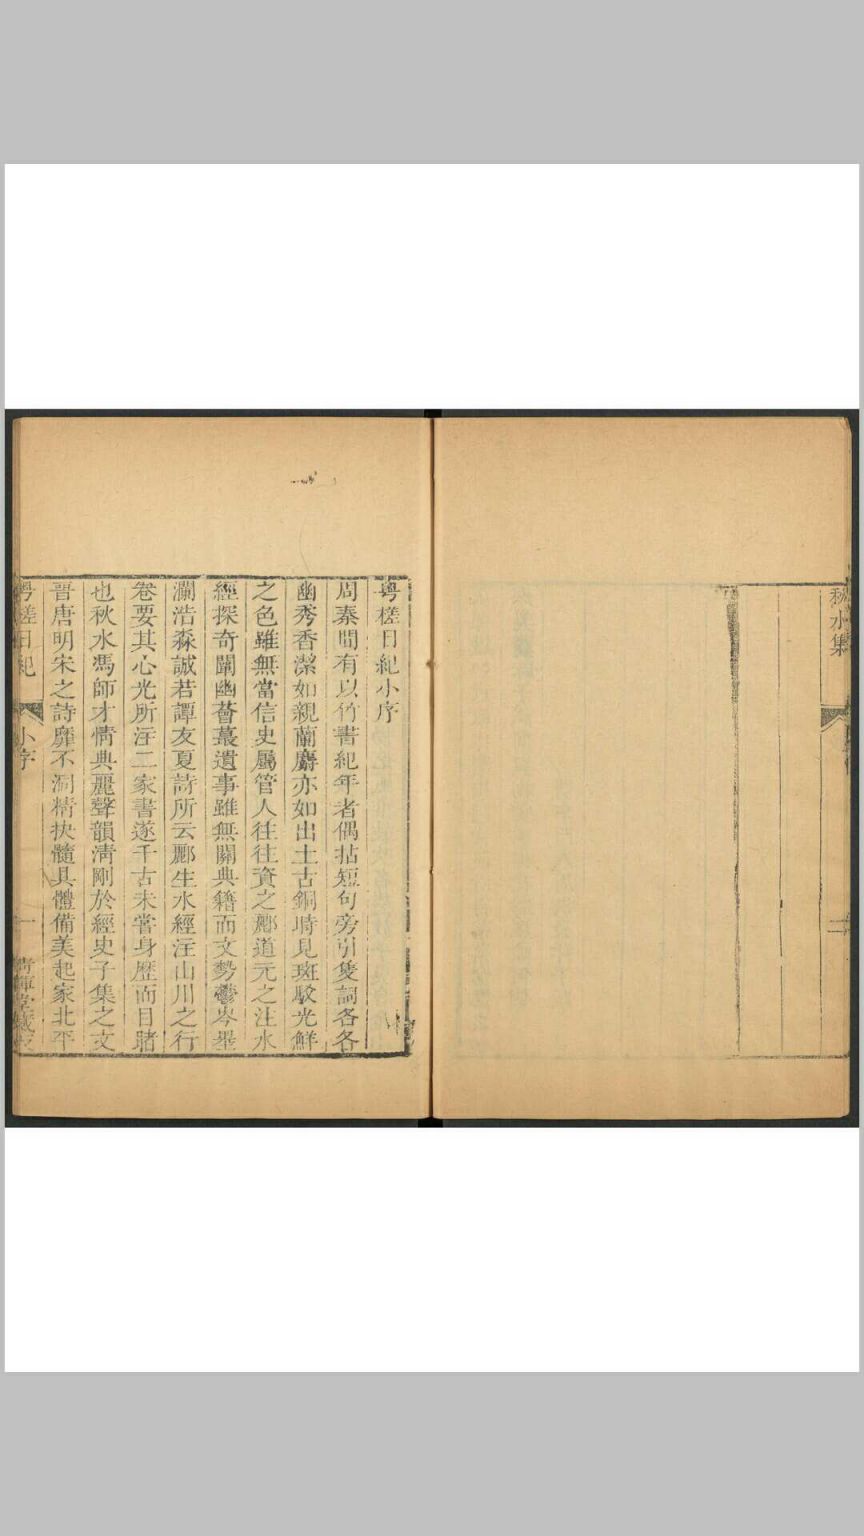 秋水集
二
粤槎日紀小序
周秦間有以竹書紀年者偶拈短句旁引隻詞各各
幽秀香潔如親蘭麝亦如出土古銅時見斑駁光鮮
之色雖無當信史屬管人往往資之酈道元之注水
經探奇闡幽薈蕞遺事雖無關典籍而文勢鬱岑墨
瀾浩淼誠若譚友夏詩所云酈生水經注山川之行
卷要其心光所注二家書遂千古未嘗身歷而目睹
也秋水馮師才情典麗聲韻淸剛於經史子集之文
晋唐明宋之詩靡不洞精抉髓具體備美起家北平
粤槎日紀
小序
一
清暉堂藏板